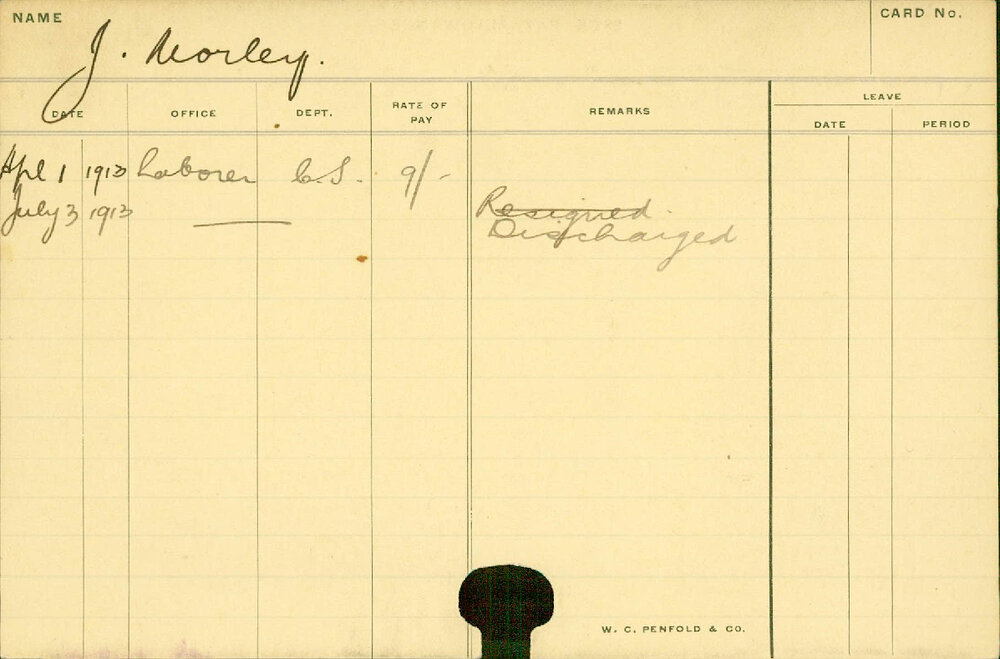 NAME
J. Morley.
CARD No.
DATE OFFICE DEPT. RATE OF PAY REMARKS LEAVE
DATE PERIOD
Apl 1 1913 Laborer C.S. 9/-
July 3 1913 Resigned.
Discharged
W. C. PENFOLD & CO.